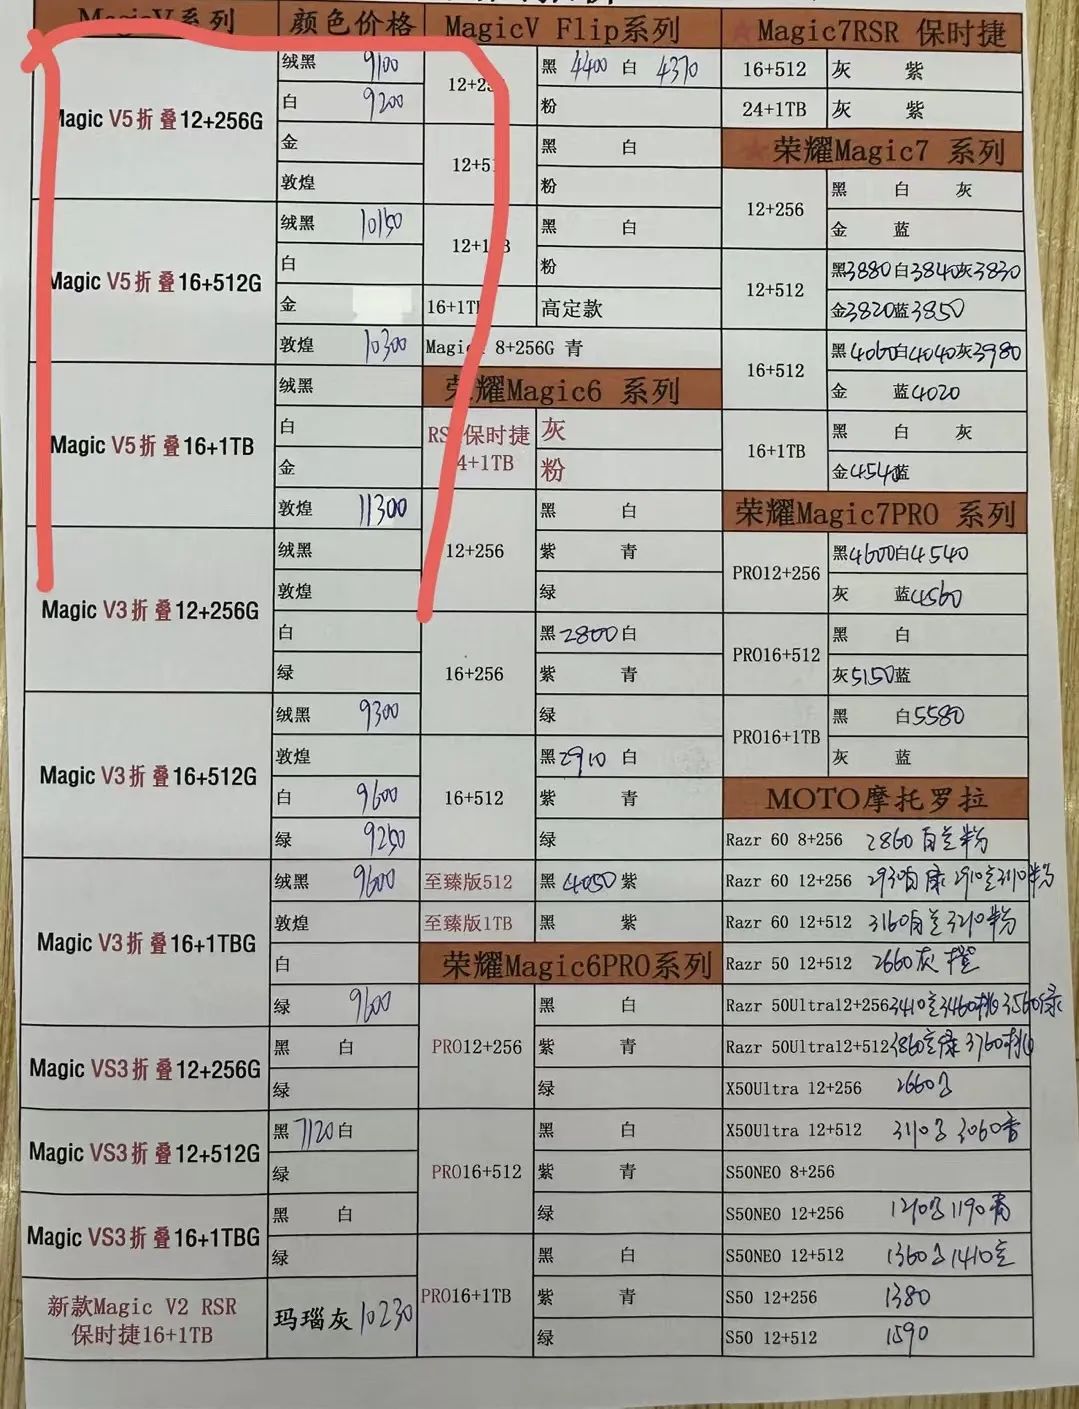 MagicV系列 颜色价格
Magic V5折叠12+256G
绒黑 9100
白 9200
金
敦煌
Magic V5折叠16+512G
绒黑 10150
白
金
敦煌 10300
Magic V5折叠16+1TB
绒黑
白
金
敦煌 11300
Magic V3折叠12+256G
绒黑
敦煌
白
绿
Magic V3折叠16+512G
绒黑 9300
敦煌
白 9600
绿 9250
Magic V3折叠16+1TBG
绒黑 9600
敦煌
白
绿 9600
Magic VS3折叠12+256G
黑 白
绿
Magic VS3折叠12+512G
黑 7120 白
绿
Magic VS3折叠16+1TBG
黑 白
绿
新款Magic V2 RSR
保时捷16+1TB
玛瑙灰 10230
MagicV Flip系列
黑 4400 白 4370
粉
黑 白
粉
黑 白
粉
16+1TB 高定款
8+256G 青
荣耀Magic6 系列
保时捷
灰
粉
12+256
黑 白
紫 青
绿
16+256
黑 2800 白
紫 青
绿
16+512
黑 2910 白
紫 青
绿
至臻版512 黑 4050 紫
至臻版1TB 黑 紫
荣耀Magic6PRO系列
PRO12+256
黑 白
紫 青
绿
PRO16+512
黑 白
紫 青
绿
PRO16+1TB
黑 白
紫 青
绿
Magic7RSR 保时捷
16+512 灰 紫
24+1TB 灰 紫
荣耀Magic7 系列
12+256
黑 白 灰
金 蓝
12+512
黑3880白3840灰3830
金3820蓝3850
16+512
黑4060白4040灰3980
金 蓝4020
16+1TB
黑 白 灰
金4540蓝
荣耀Magic7PRO 系列
PRO12+256
黑4600白4540
灰 蓝4560
PRO16+512
黑 白
灰5150蓝
PRO16+1TB
黑 白5580
灰 蓝
MOTO摩托罗拉
Razr 60 8+256 2860 粉
Razr 60 12+256 2930 2910 3110粉
Razr 60 12+512 3160 3210粉
Razr 50 12+512 2660灰 橙
Razr 50Ultra12+256 3410 3460桃 3560绿
Razr 50Ultra12+512 3860 绿 3760桃
X50Ultra 12+256 2660
X50Ultra 12+512 3110 3060
S50NEO 8+256
S50NEO 12+256 1210 1190青
S50NEO 12+512 1360 1410
S50 12+256 1380
S50 12+512 1590